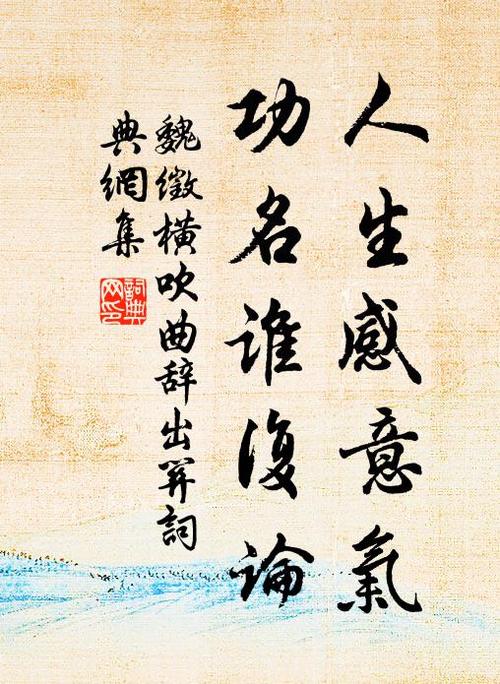 人生感意氣
功名誰復论
魏徵橫吹曲辞出関詞
典網集
詞典
网印